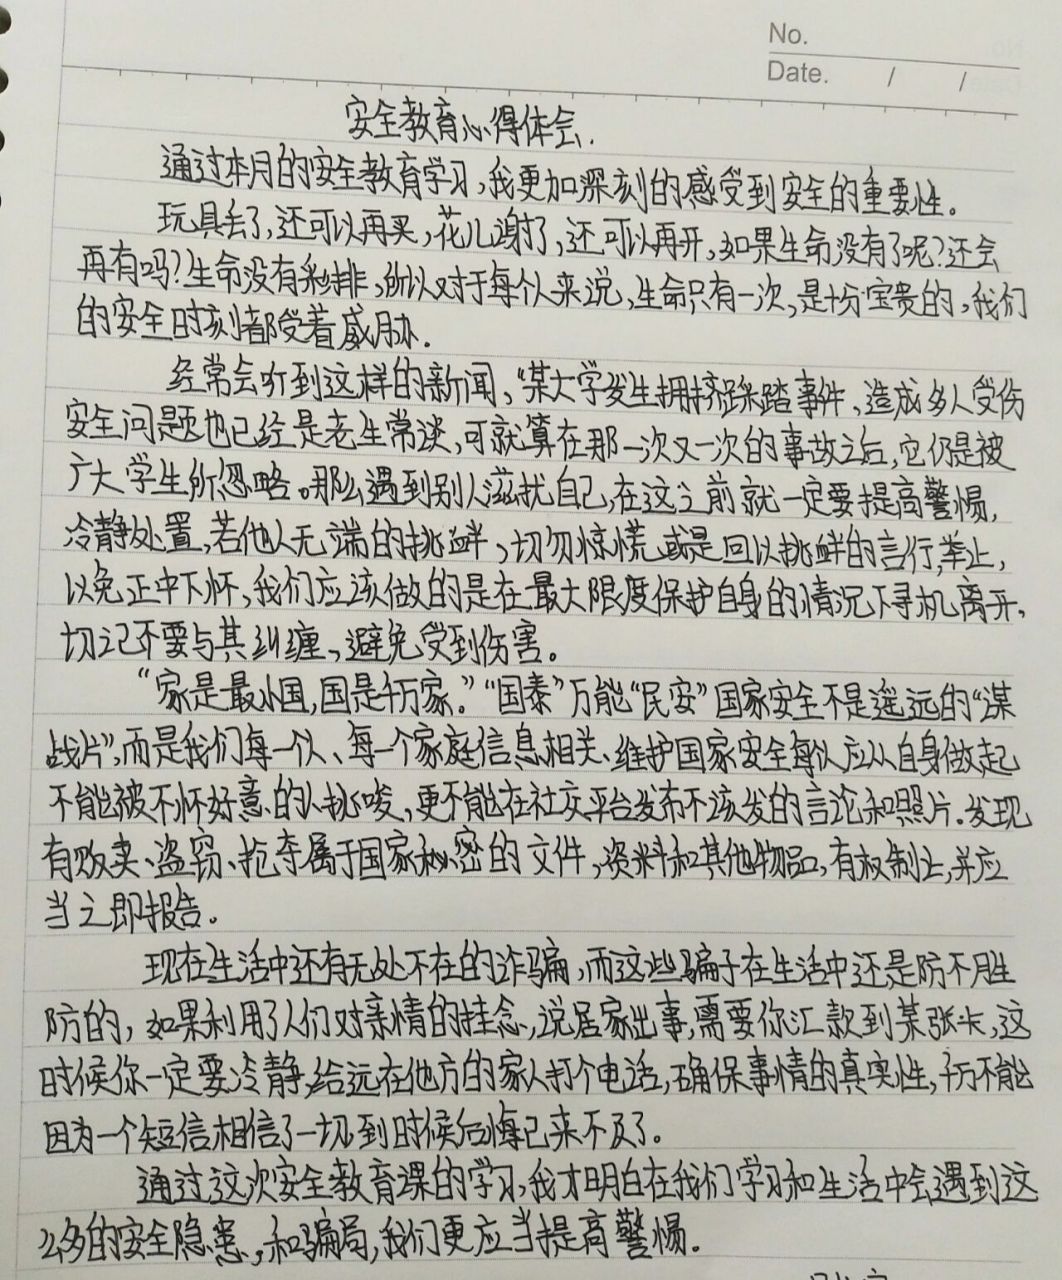 No.
Date. / /
安全教育心得体会.
通过本月的安全教育学习,我更加深刻的感受到安全的重要性。
玩具丢了,还可以再买,花儿谢了,还可以再开,如果生命没有了呢?还会
再有吗?生命没有彩排,所以对于每个人来说,生命只有一次,是十分宝贵的,我们
的安全时刻都受着威胁.
经常会听到这样的新闻,“某大学发生拥挤踩踏事件,造成多人受伤
安全问题也已经是老生常谈,可就算在那一次又一次的事故之后,它仍是被
广大学生所忽略。那么遇到别人滋扰自己,在这之前就一定要提高警惕,
冷静处置,若他人无端的挑衅,切勿惊慌或是回以挑衅的言行,举止,
以免正中下怀,我们应该做的是在最大限度保护自身的情况下寻机离开,
切记不要与其纠缠,避免受到伤害。
“家是最小国,国是千万家。”“国泰”方能“民安”国家安全不是遥远的“谍
战片”,而是我们每一个人、每一个家庭信息相关、维护国家安全每人应从自身做起
不能被不怀好意的人挑唆,更不能在社交平台发布不该发的言论和照片.发现
有贩卖、盗窃、抢夺属于国家秘密的文件,资料和其他物品,有权制止,并应
当立即报告。
现在生活中还有无处不在的诈骗,而这些骗子在生活中还是防不胜
防的,如果利用了人们对亲情的挂念,说居家出事,需要你汇款到某张卡,这
时候你一定要冷静,给远在他方的家人打个电话,确保事情的真实性,千万不能
因为一个短信相信了一切到时候后悔已来不及了。
通过这次安全教育课的学习,我才明白在我们学习和生活中会遇到这
么多的安全隐患,和骗局,我们更应当提高警惕.